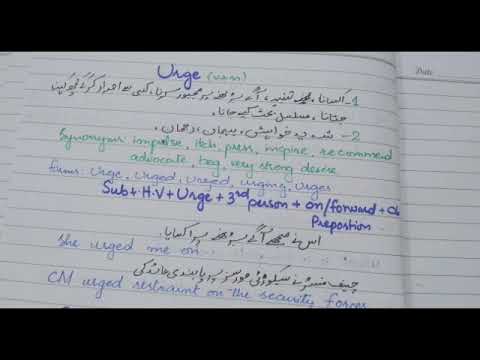 Urge (v & n)
Date
1- اکسانا، تنقید، آگے بڑھنے پر مجبور کرنا، کسی سے اصرار کرکے
جتانا، مسلسل بحث کیے جانا۔
2- شدید خواہش، ہیجان، رحجان۔
Synonyms impulse, itch, press, inspire, recommend
advocate, beg, very strong desire
forms: Urge, urged, urged, urging, urges
Sub + H.V + Urge + 3rd person + on/forward +
Prepostion
اس نے مجھے آگے بڑھنے پر اکسایا۔
She urged me on
چیف منسٹر نے سیکورٹی فورسز پر پابندی عائد کی
CM urged restraint on the security forces